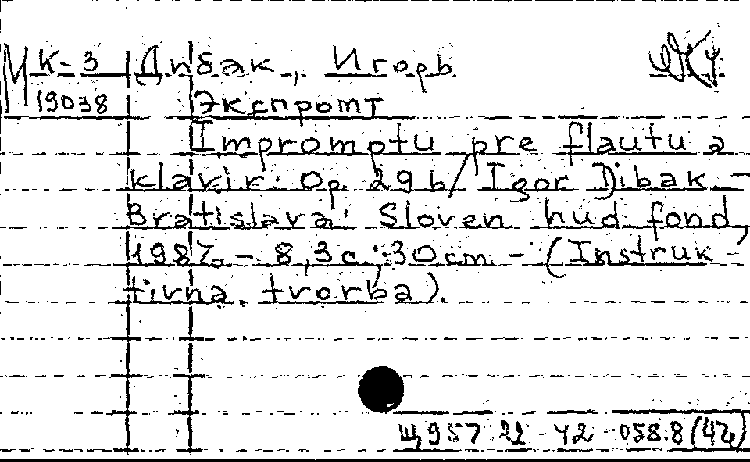 М К-3 Дибак, Игорь
19038 Экспромт
Impromptu pre flautu a
klavir: Op. 29b/ Igor Dibak. -
Bratislava: Sloven hud fond,
1987. - 8, 3 с.; 30 cm. - (Instruk-
tivna. tvorba).
Щ957.22-42-058.8(4Ч)